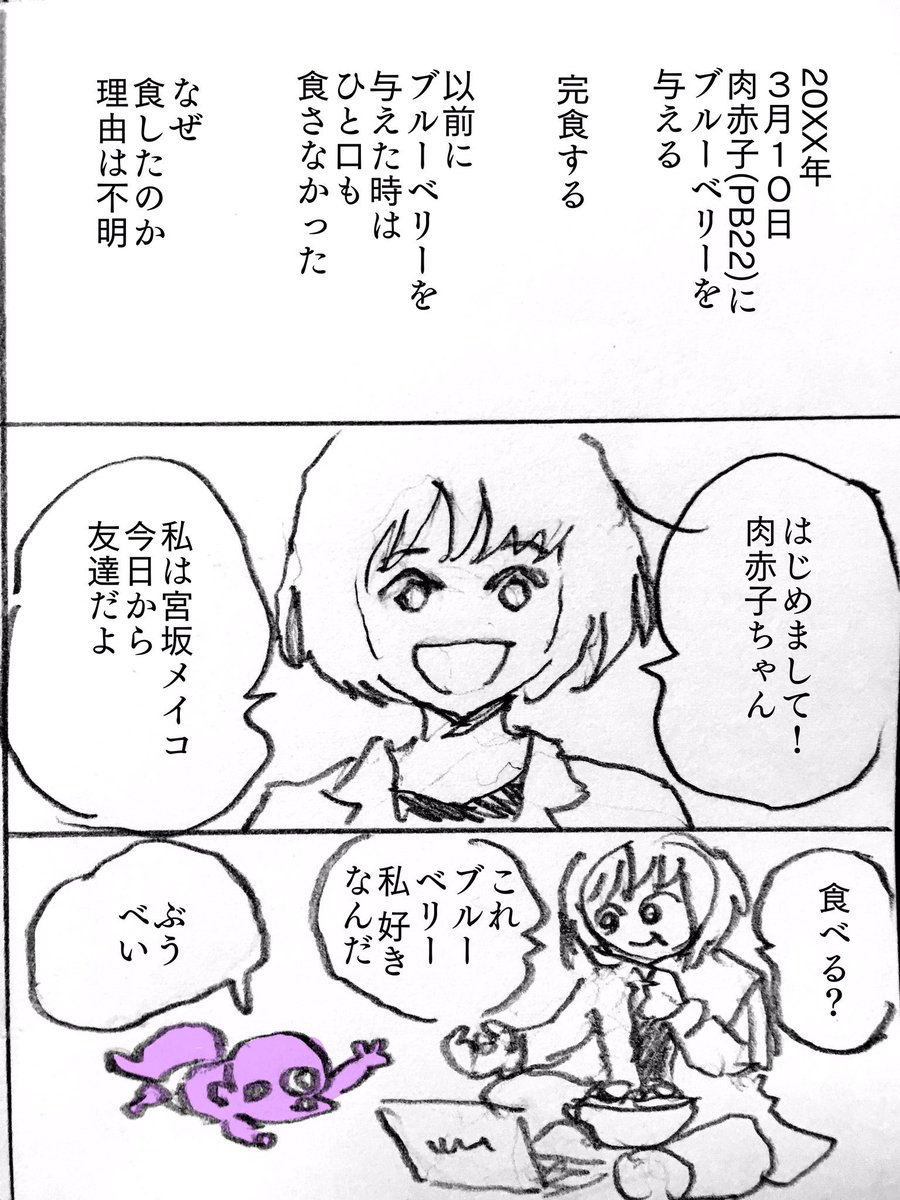 20XX年
3月10日
肉赤子(PB22)に
ブルーベリーを
与える
完食する
以前に
ブルーベリーを
与えた時は
ひと口も
食さなかった
なぜ
食したのか
理由は不明
はじめまして!
肉赤子ちゃん
私は宮坂メイコ
今日から
友達だよ
食べる?
これ
ブルー
ベリー
私 好き
なんだ
ぶう
べい